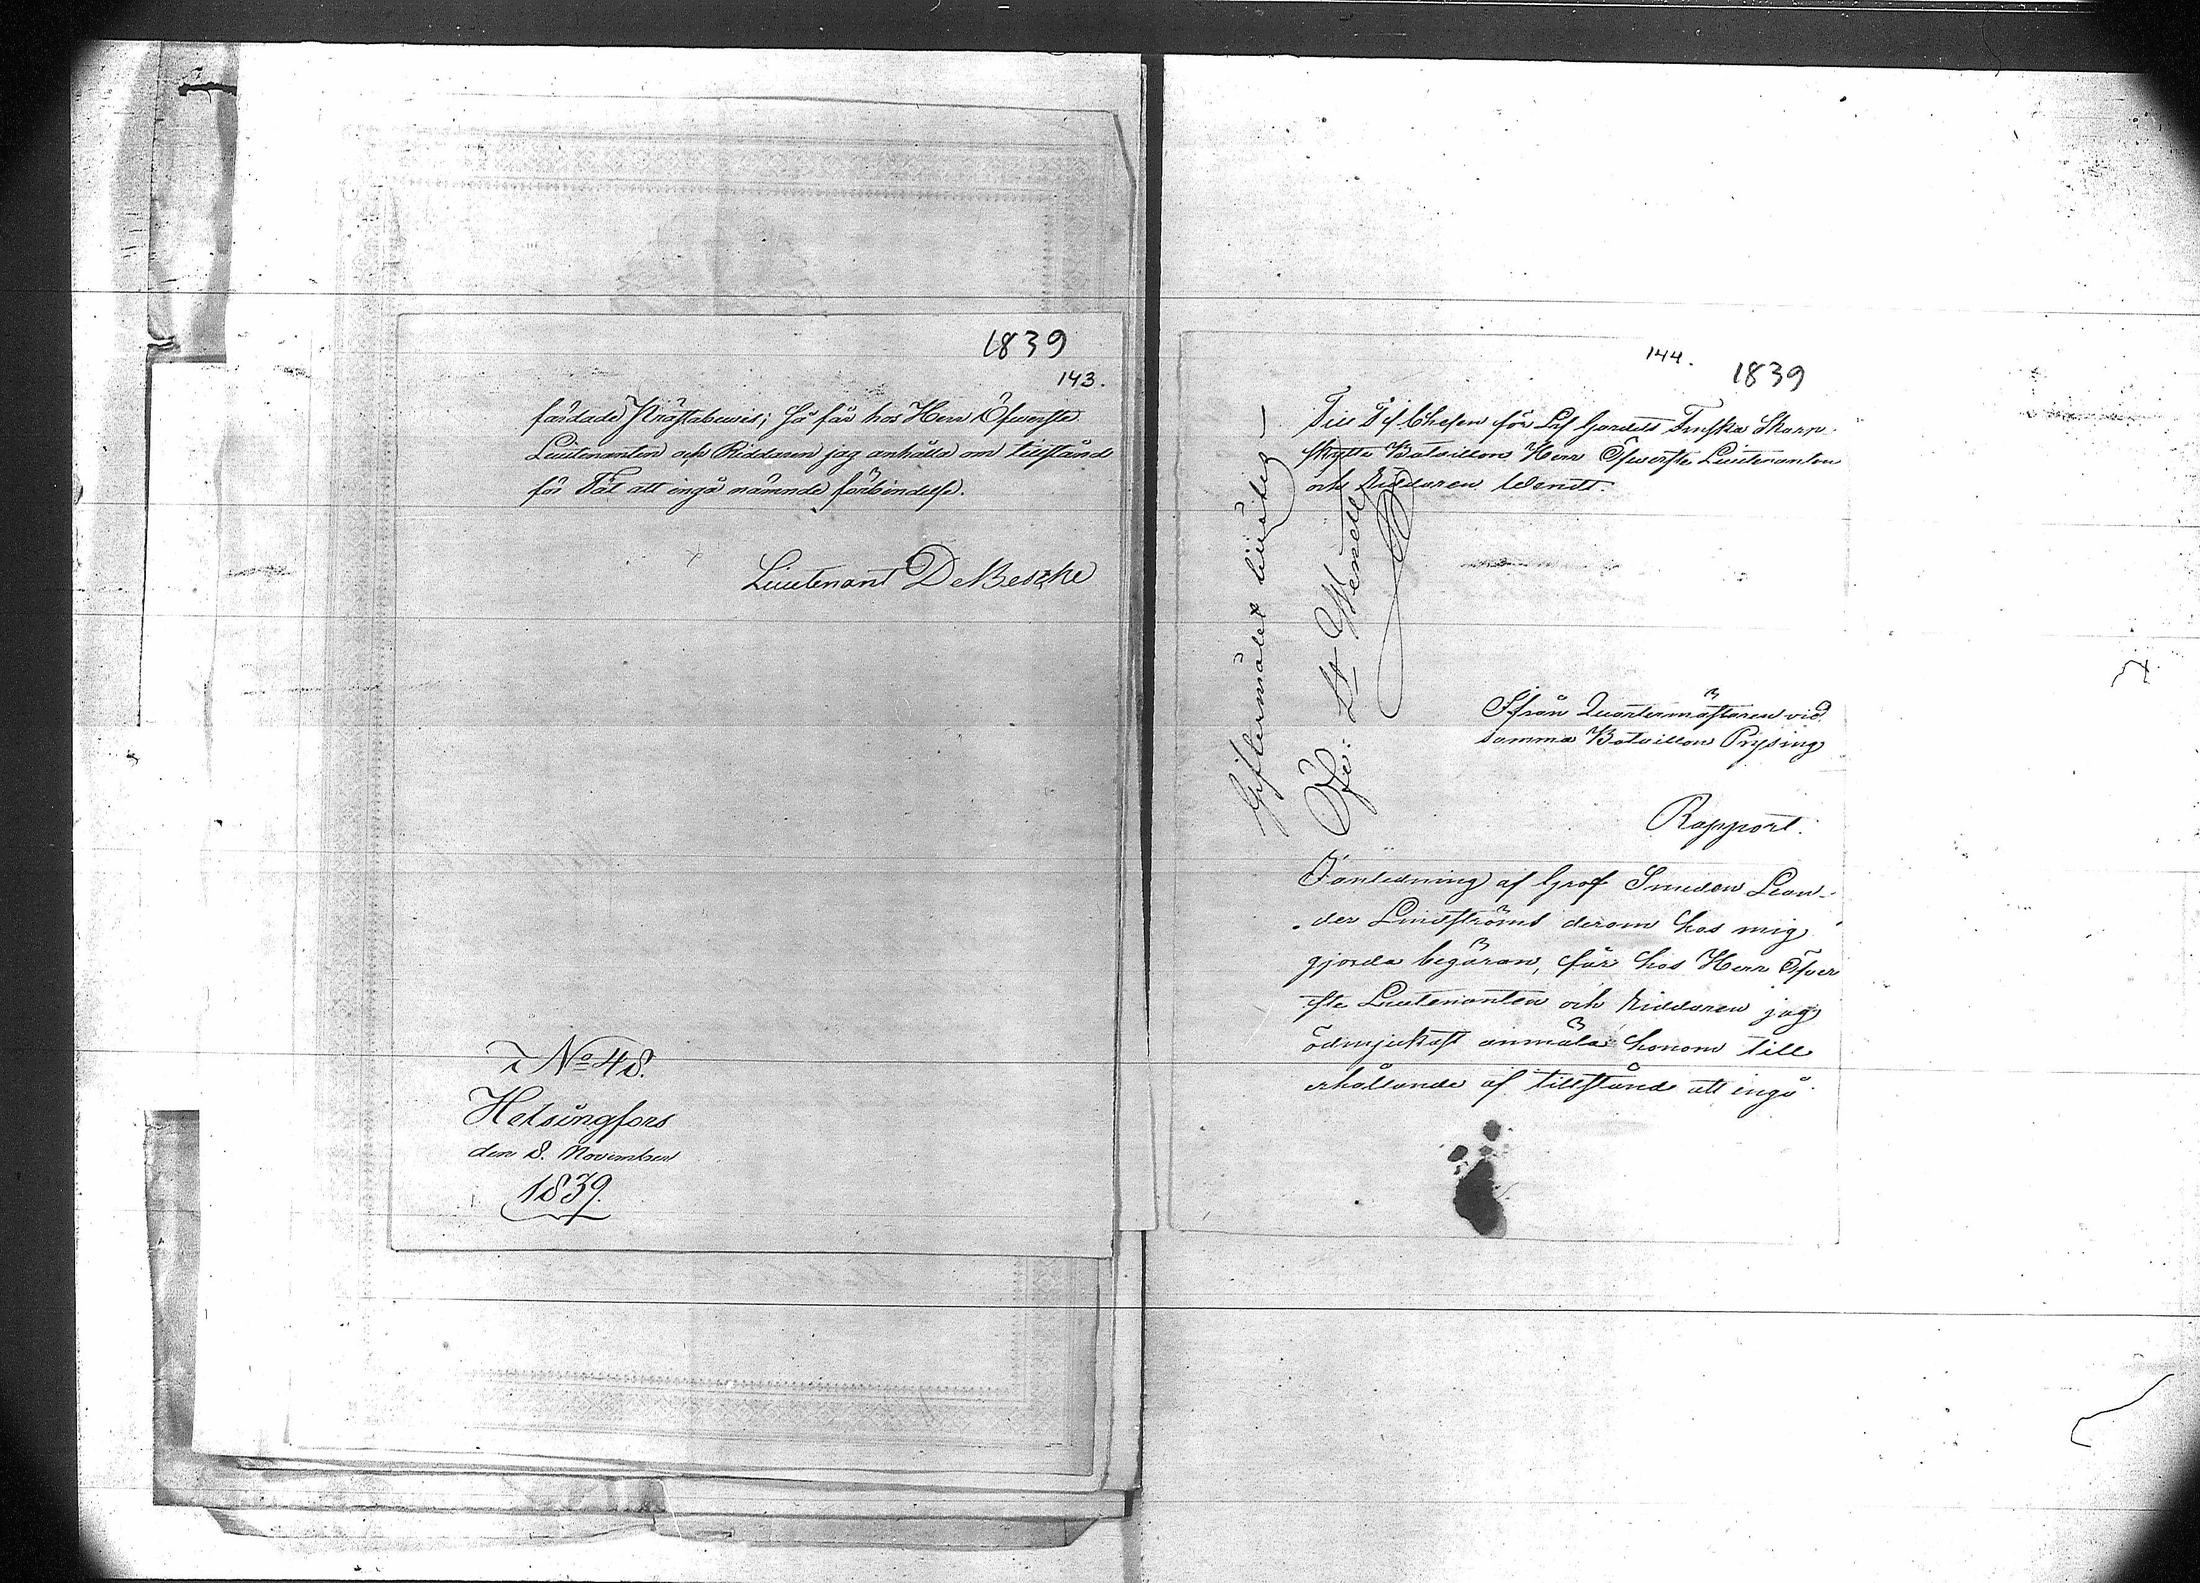 1839
143.
färdade Prästabewis; Så får hos Herr Öfwerste
Lieutenanten och Riddaren jag anhålla om tillstånd
för Tål att ingå nämnde förbindelse.
Lieutenant DeBesche
No 48.
Helsingfors
den 8. November
1839.
144.
1839
Till Tf Chefen för Lif Gardets Finska Skarp-
skytte Bataillon Herr Öfwerste Lieutenanten
och Riddaren Wendt.
Giftermålet tillåtes
Öfv: Lt Wendt
Ifrån Quartermästaren vid
samma Bataillon Prysing
Rapport.
I anledning af Grof Smeden Lean-
der Lindströms derom hos mig
gjorda begäran, får hos Herr Öfwer
ste Lieutenanten och Riddaren jag
ödmjukast anmäla honom till
erhållande af tillstånd att ingå